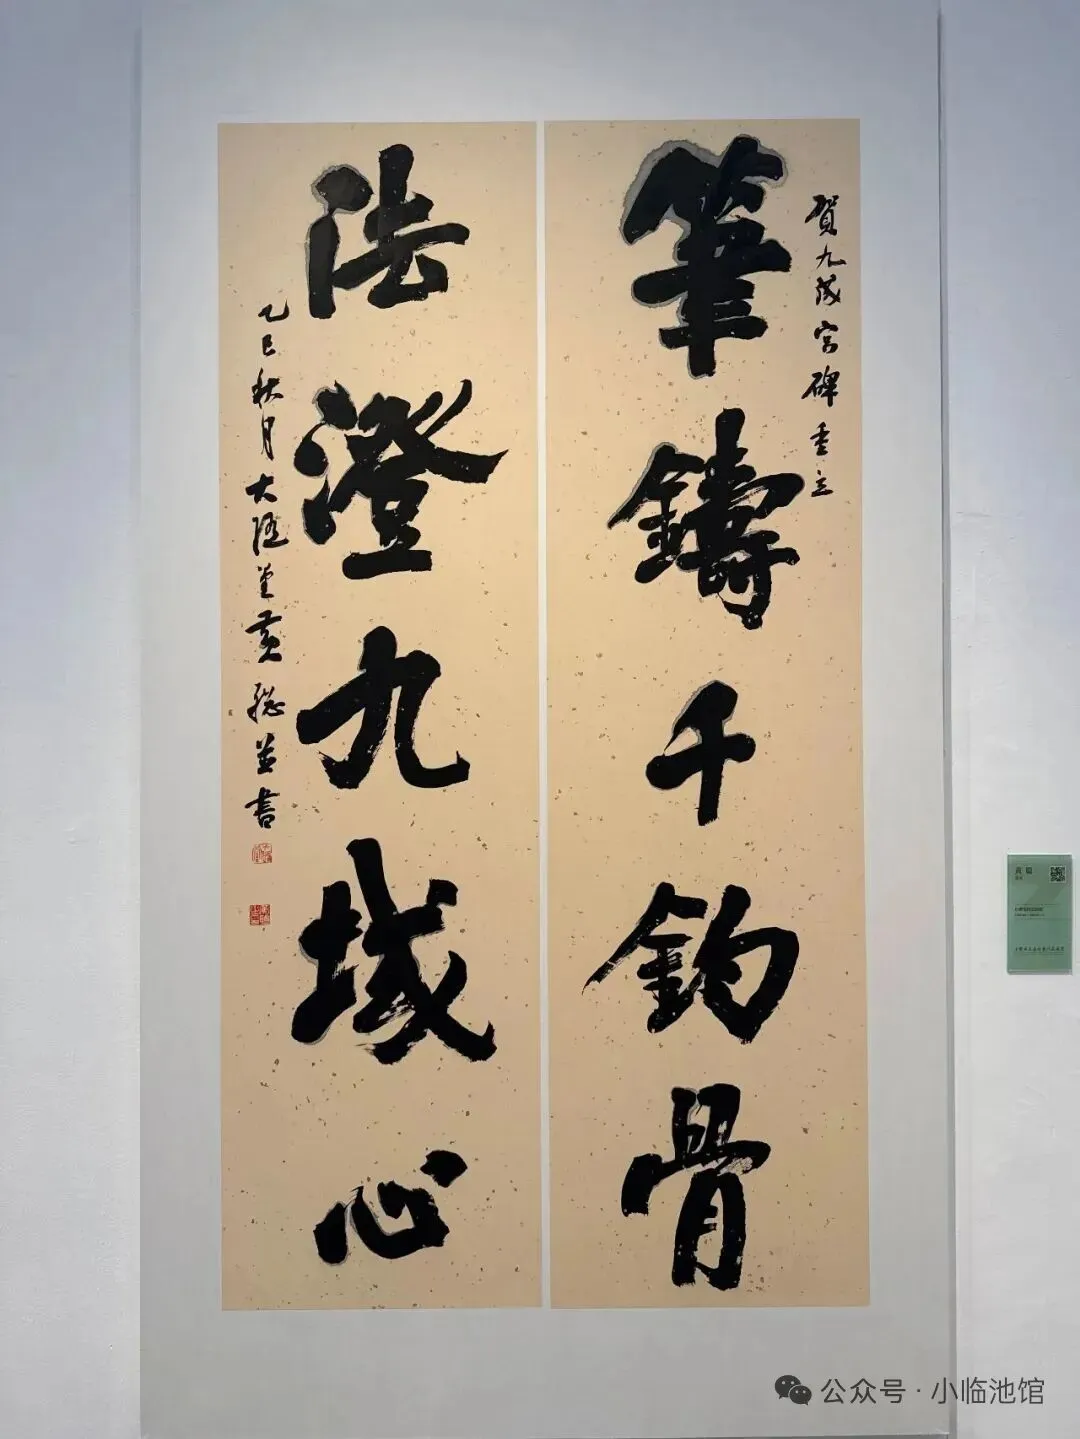 賀九成宮碑重立
筆鑄千鈞骨
法澄九域心
乙巳秋月大隱堂黃聪並書
公众号·小临池馆